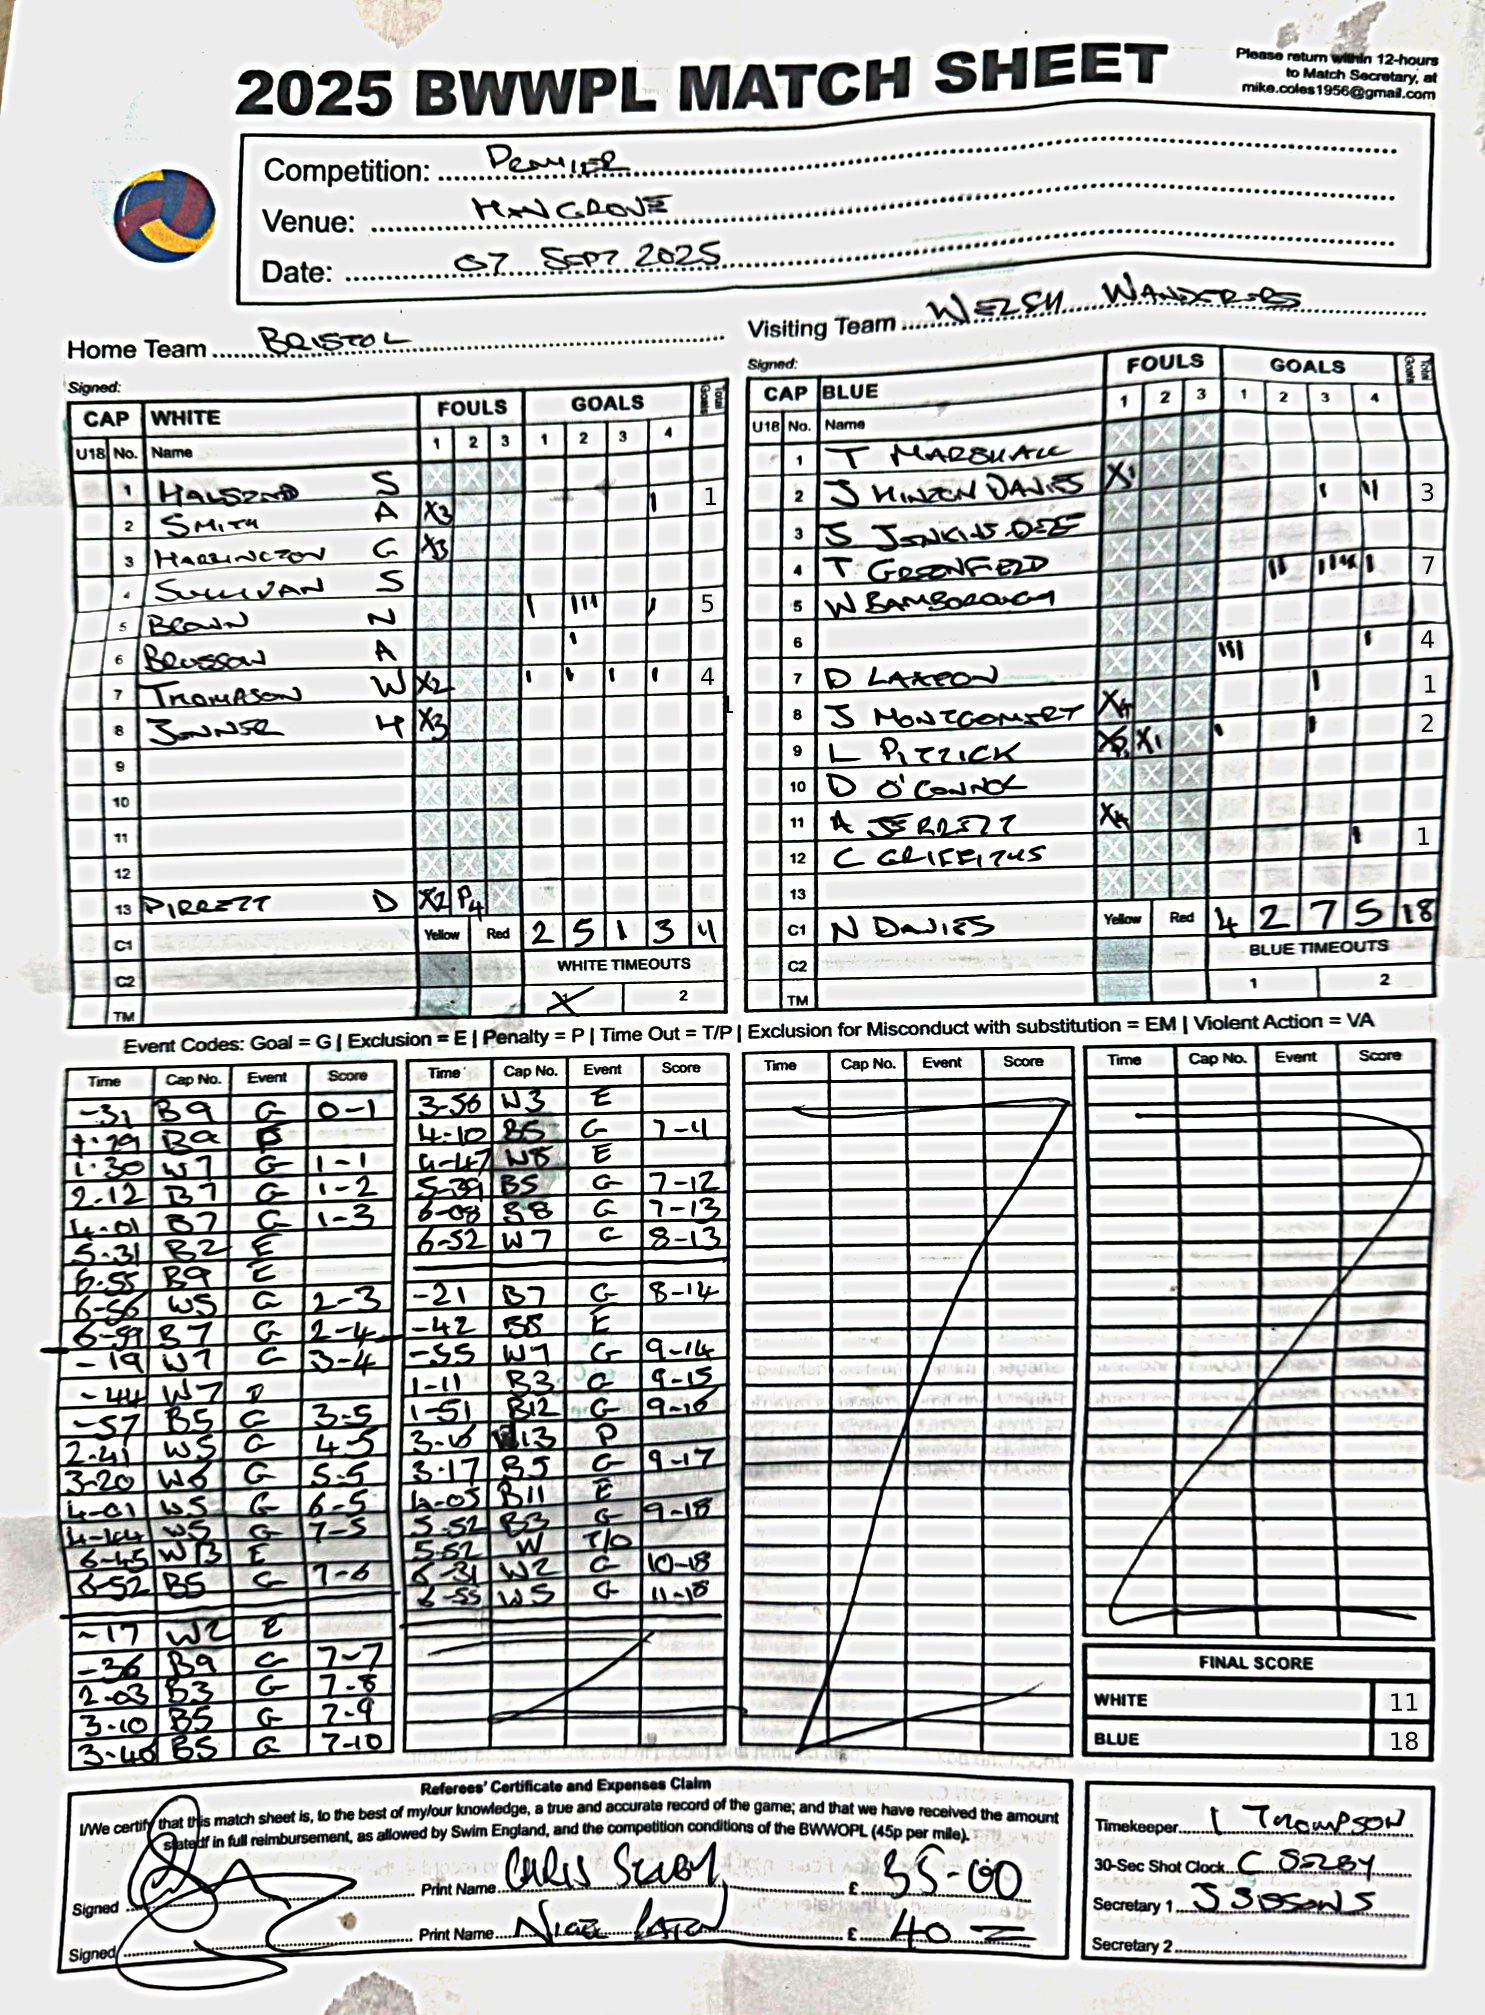 2025 BWWPL MATCH SHEET
Please return within 12-hours
to Match Secretary, at
mike.coles1956@gmail.com
Competition: PREMIER
Venue: MANGROVE
Date: 07 SEPT 2025
Home Team BRISTOL
Visiting Team WELSH WANDERERS
Signed:
CAP WHITE FOULS GOALS Total Goals
U18 No. Name 1 2 3 1 2 3 4
1 S
2 SMITH A X3 1
3 HARRINGTON G X3
4 SULLIVAN S
5 BROWN N 5
6 A
7 THOMPSON W X2 4
8 JENNER H X3
9
10
11
12
13 PIRRETT D X2 P4
C1 Yellow Red 2 5 1 3 11
C2 WHITE TIMEOUTS
TM 1 2
Signed:
CAP BLUE FOULS GOALS Total Goals
U18 No. Name 1 2 3 1 2 3 4
1 T MARSHALL
2 J HINTON DAVIES X1
3 S JENKINS DEE 3
4 T GREENFIELD
5 W BAMBOROUGH 7
6
7 D LAXTON 4
8 J MONTGOMERY X4 1
9 L PITTICK XP1 X1 2
10 D O'CONNOR
11 A JERRETT X4
12 C GRIFFITHS 1
13
C1 N DAVIES Yellow Red 4 2 7 5 18
C2 BLUE TIMEOUTS
TM 1 2
Event Codes: Goal = G | Exclusion = E | Penalty = P | Time Out = T/P | Exclusion for Misconduct with substitution = EM | Violent Action = VA
Time Cap No. Event Score
-31 B9 G 0-1
1-29 B9 P
1-30 W7 G 1-1
2-12 B7 G 1-2
4-01 B7 G 1-3
5-31 B2 E
6-55 B9 E
6-56 W5 G 2-3
6-59 B7 G 2-4
-19 W7 G 3-4
-44 W7 E
-57 B5 G 3-5
2-41 W5 G 4-5
3-20 W6 G 5-5
4-01 W5 G 6-5
4-44 W5 G 7-5
6-45 W13 E
6-52 B5 G 7-6
-17 W2 E
-36 B9 G 7-7
2-03 B3 G 7-8
3-10 B5 G 7-9
3-40 B5 G 7-10
Time Cap No. Event Score
3-56 W3 E
4-10 B5 G 7-11
4-47 W8 E
5-39 B5 G 7-12
6-08 B8 G 7-13
6-52 W7 G 8-13
-21 B7 G 8-14
-42 B8 E
-55 W7 G 9-14
1-11 B3 G 9-15
1-51 B12 G 9-16
3-16 W13 P
3-17 B5 G 9-17
4-05 B11 E
5-52 B3 G 9-18
5-52 W T/O
6-31 W2 G 10-18
6-55 W5 G 11-18
Time Cap No. Event Score
Time Cap No. Event Score
FINAL SCORE
WHITE 11
BLUE 18
Referees' Certificate and Expenses Claim
I/We certify that this match sheet is, to the best of my/our knowledge, a true and accurate record of the game; and that we have received the amount
statedf in full reimbursement, as allowed by Swim England, and the competition conditions of the BWWOPL (45p per mile).
Signed Print Name CHRIS SELBY £ 35-00
Signed Print Name NIGEL £ 40
Timekeeper I THOMPSON
30-Sec Shot Clock C SELBY
Secretary 1 J SISSONS
Secretary 2